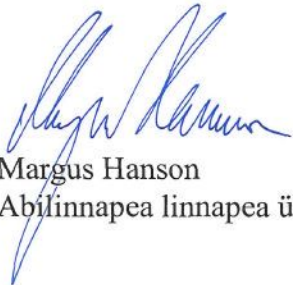 Margus Hanson
Abilinnapea linnapea ü